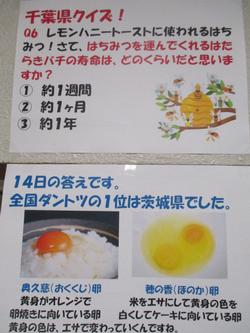 千葉県クイズ！
Q6 レモンハニートーストに使われるはち
みつ！さて、はちみつを運んでくれるはた
らきバチの寿命は、どのくらいだと思いま
すか？
① 約1週間
② 約1ヶ月
③ 約1年
14日の答えです。
全国ダントツの1位は茨城県でした。
奥久慈（おくくじ）卵
黄身がオレンジで
卵焼きに向いている卵
穂の香（ほのか）卵
米をエサにして黄身の色を
白くしてケーキに向いている卵
黄身の色は、エサで変わっていくんですね。